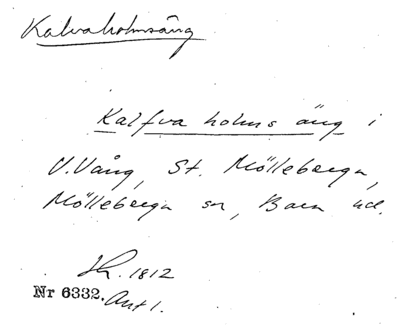 Kalvaholmsäng
Kalfva holms äng i
V. Vång, St. Mölleberga,
Mölleberga sn, Bara hd.
1812
Nr 6332. Akt 1.